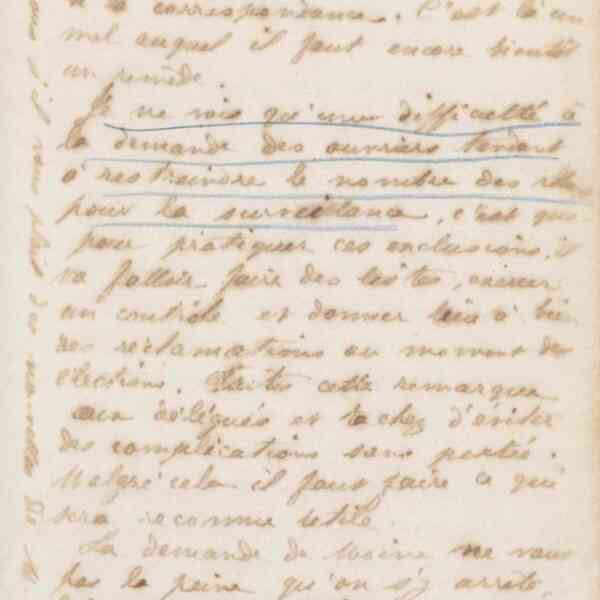 à la correspondance. C'est là un
mal auquel il faut encore bientôt
un remède.
Je ne vois qu'une difficulté à
la demande des ouvriers tendant
à restreindre le nombre des
pour la surveillance, c'est que
pour pratiquer ces exclusions, il
va falloir faire des listes, exercer
un contrôle et donner lieu à bien
des réclamations au moment des
élections. Faites cette remarque
aux délégués et tachez d'éviter
des complications sans portée.
Malgré cela il faut faire ce qui
sera reconnu utile.
La demande de Moine ne vaut
pas la peine qu'on s'y arrête,
s'il vous plait des nouvelles de